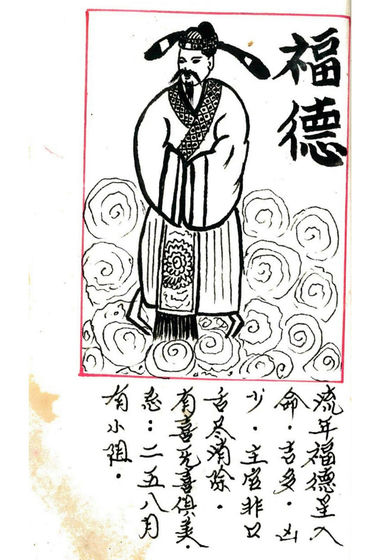 福德
流年福德星入
命．吉多．凶
少．主官非口
舌尽消除．
有喜无喜俱美．
忌：二五八月
有小阻．